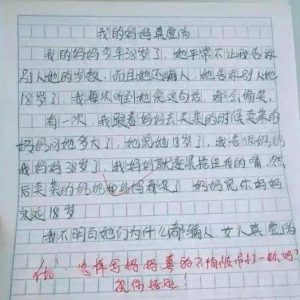 我的妈妈真虚伪
我的妈妈今年38岁了，她平常不让我告诉
别人她的岁数，而且她还骗人，她告诉别人她
18岁了，我每次听到她说这句话，都会偷笑。
有一次，我跟着妈妈去买菜的时候卖菜的
奶奶问她多大了，她说她18岁了，我告诉奶奶
我妈妈38岁了，我妈妈就捂住我的嘴，然
后卖菜的奶奶和妈妈都笑了，奶奶说你妈妈
永远18岁
我不明白她们为什么都骗人，女人真虚伪
优：这样写妈妈真的不怕被吊打一顿吗？
祝你好运！